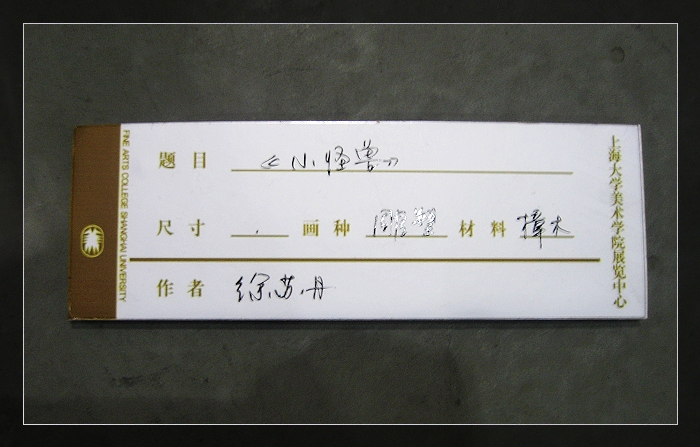 FINE ARTS COLLEGE SHANGHAI UNIVERSITY
题目 《小怪兽》
尺寸 画种 材料 樟木
作者 徐苏丹
上海大学美术学院展览中心